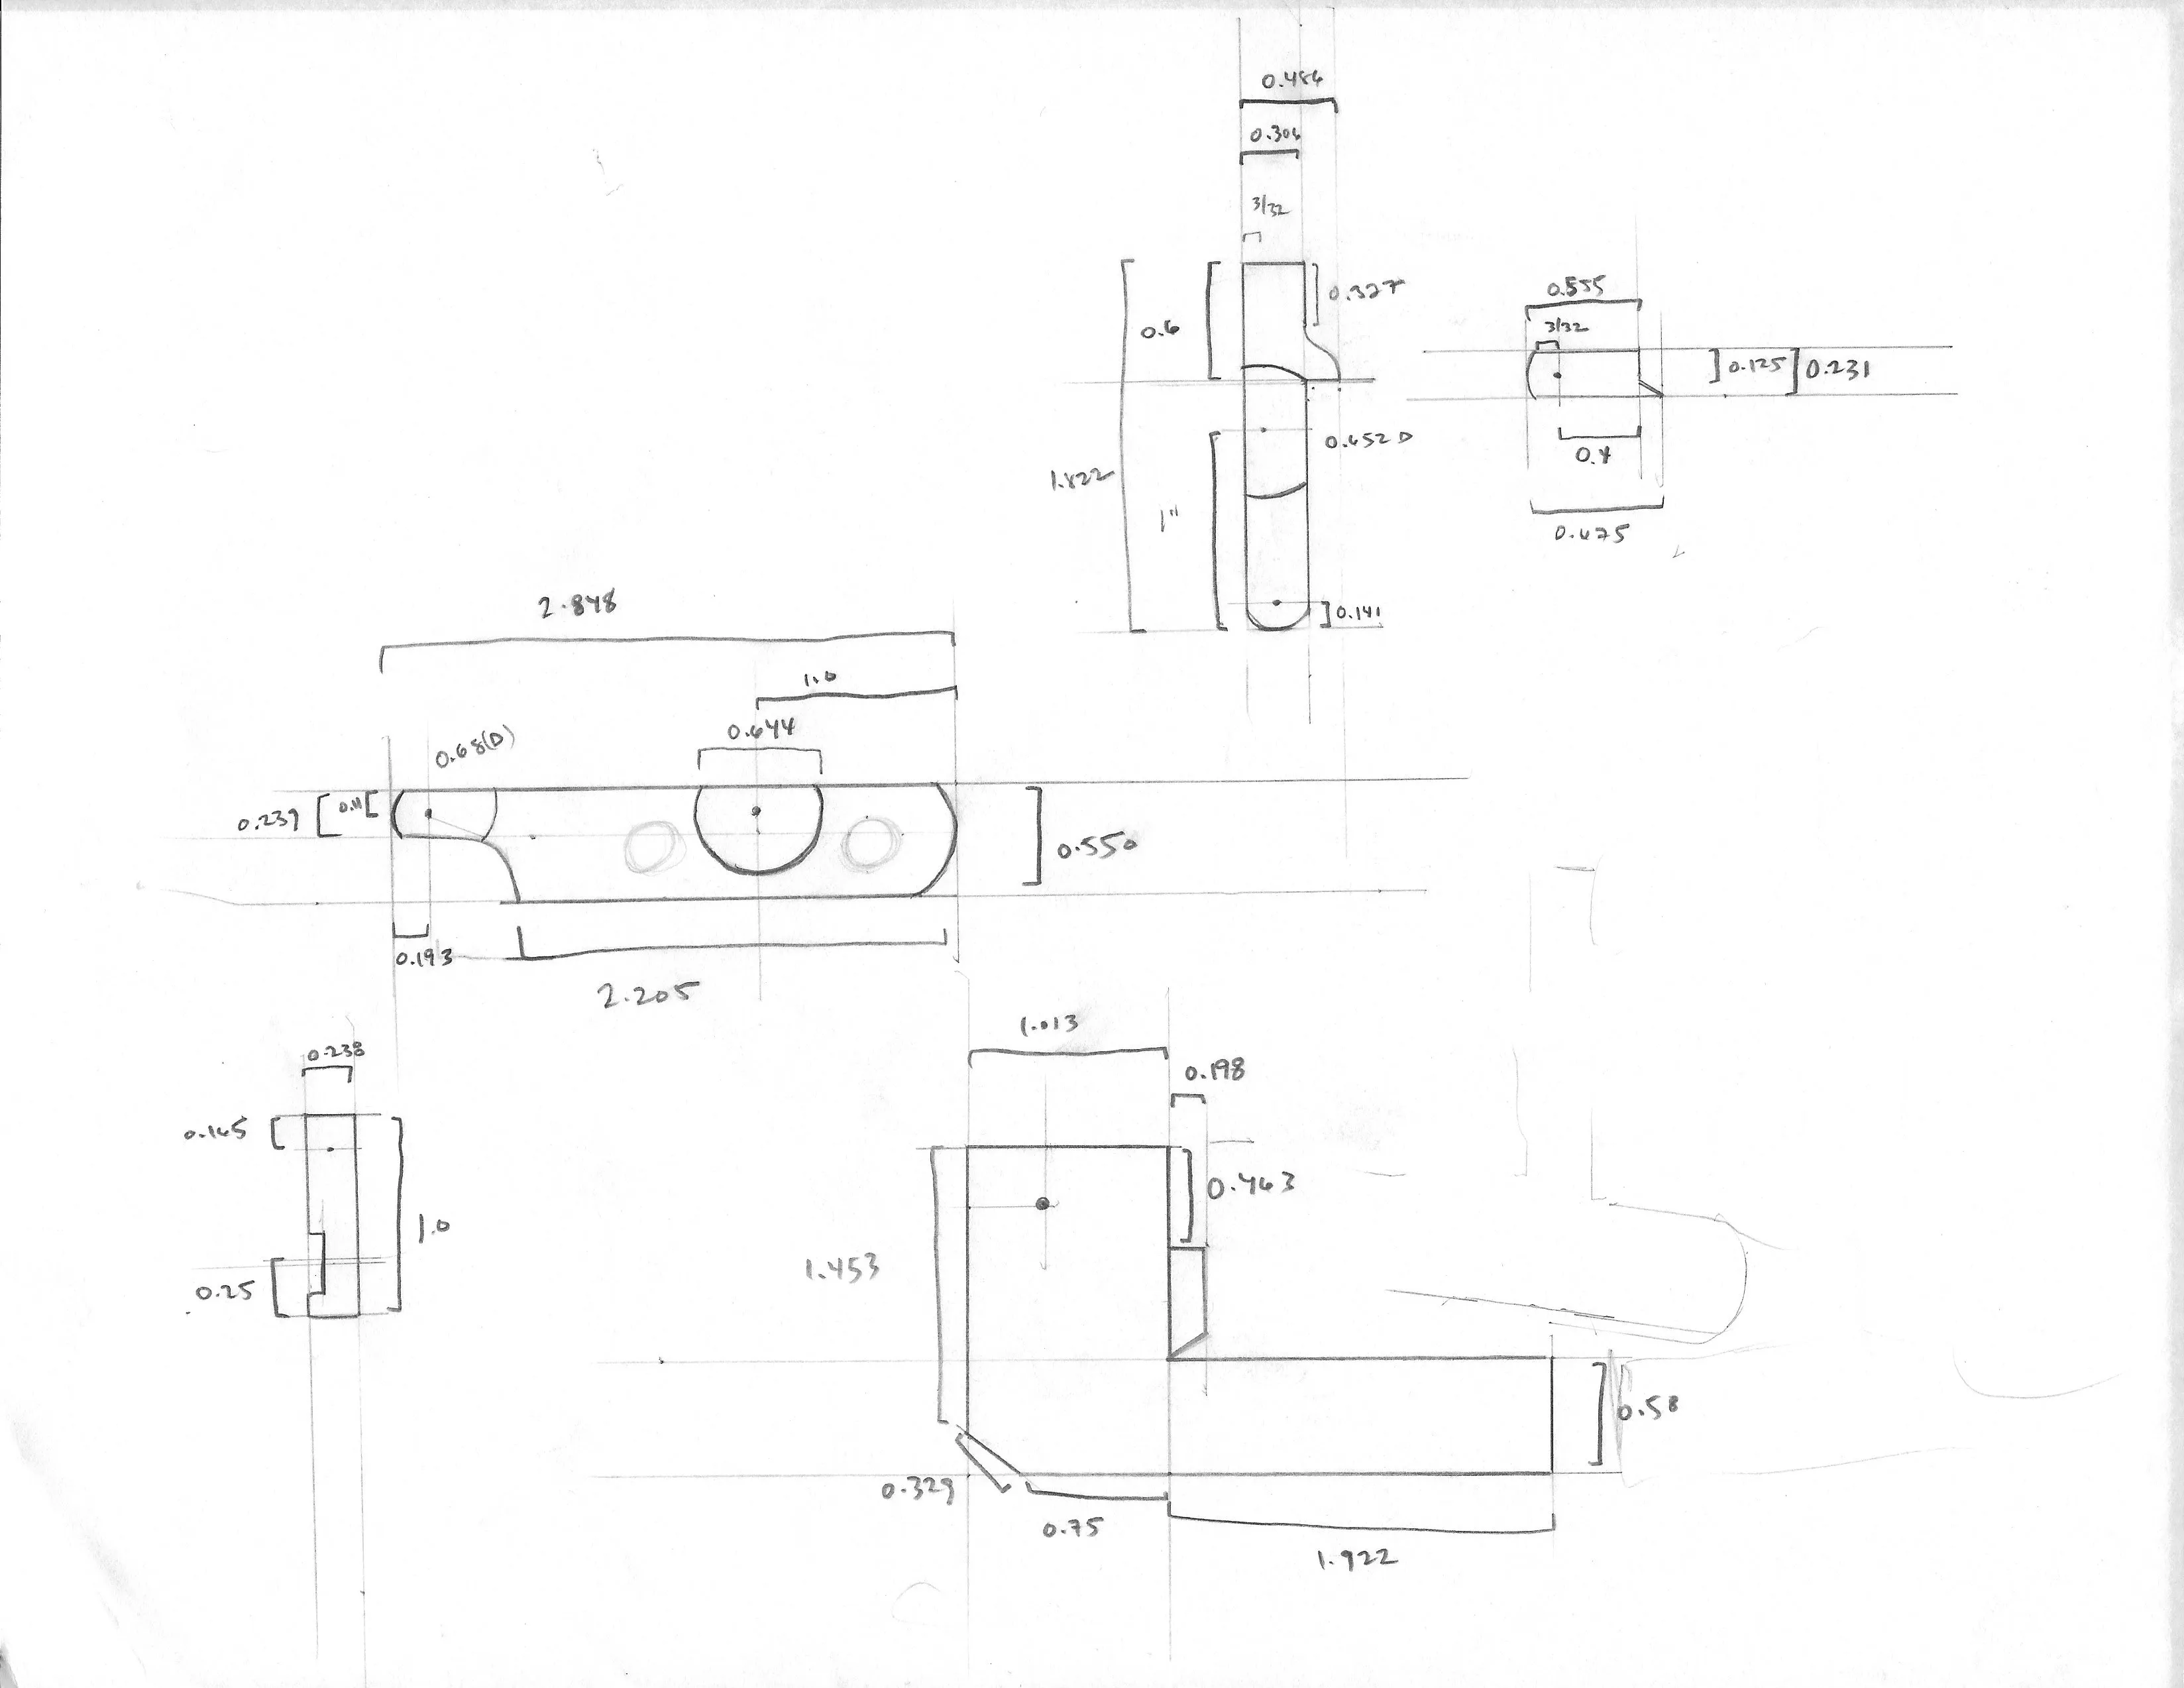 0.486
0.306
3/32
0.327
0.6
0.652 D
1.822
1"
0.141
0.555
3/32
0.125
0.231
0.4
0.675
2.848
1.0
0.644
0.68(D)
0.239
0.11
0.550
0.193
2.205
0.238
0.165
1.0
0.25
1.013
0.198
0.463
1.453
0.58
0.329
0.75
1.922